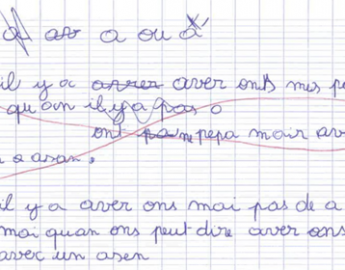 a ou à
il y a aver ons mes p
qu'on il y a pas o
ont pa ne pepa mair av
a asan,
il y a aver ons mai pas de a
mai quan ons peut dire aver ons
avec un asen